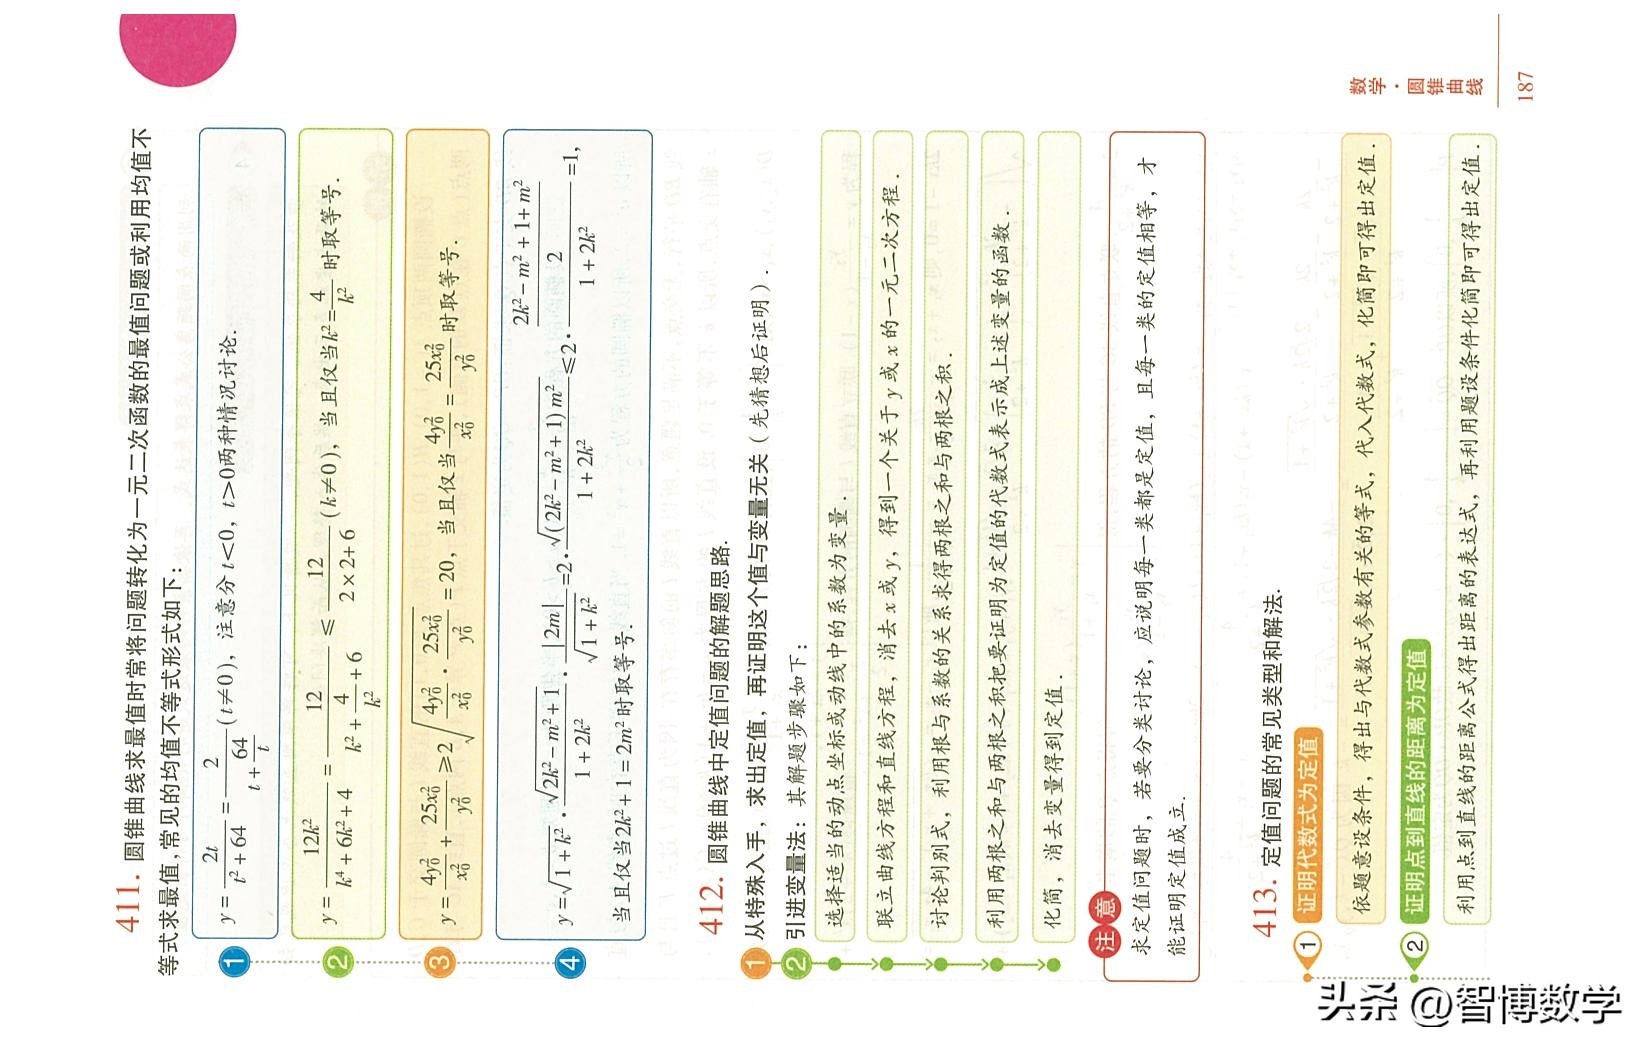 411. 圆锥曲线求最值时常将问题转化为一元二次函数的最值问题或利用均值不
等式求最值,常见的均值不等式形式如下：
① y=2t/(t²+64)=2/(t+64/t)(t≠0)，注意分t<0，t>0两种情况讨论.
② y=12k²/(k⁴+6k²+4)=12/(k²+4/k²+6)≤12/(2×2+6)(k≠0)，当且仅当k²=4/k²时取等号.
③ y=4y₀²/x₀²+25x₀²/y₀²≥2√(4y₀²/x₀²·25x₀²/y₀²)=20，当且仅当4y₀²/x₀²=25x₀²/y₀²时取等号.
④ y=√(1+k²)·√(2k²-m²+1)/(1+2k²)·|2m|/√(1+k²)=2·√((2k²-m²+1)m²)/(1+2k²)≤2·((2k²-m²+1+m²)/2)/(1+2k²)=1,
当且仅当2k²+1=2m²时取等号.
412. 圆锥曲线中定值问题的解题思路.
① 从特殊入手，求出定值，再证明这个值与变量无关（先猜想后证明）.
② 引进变量法：其解题步骤如下：
选择适当的动点坐标或动线中的系数为变量.
联立曲线方程和直线方程，消去x或y，得到一个关于y或x的一元二次方程.
讨论判别式，利用根与系数的关系求得两根之和与两根之积.
利用两根之和与两根之积把要证明为定值的代数式表示成上述变量的函数.
化简，消去变量得到定值.
注意
求定值问题时，若要分类讨论，应说明每一类都是定值，且每一类的定值相等，才
能证明定值成立.
413. 定值问题的常见类型和解法.
① 证明代数式为定值
依题意设条件，得出与代数式参数有关的等式，代入代数式，化简即可得出定值.
② 证明点到直线的距离为定值
利用点到直线的距离公式得出距离的表达式，再利用题设条件化简即可得出定值.
数学·圆锥曲线
187
头条 @智博数学